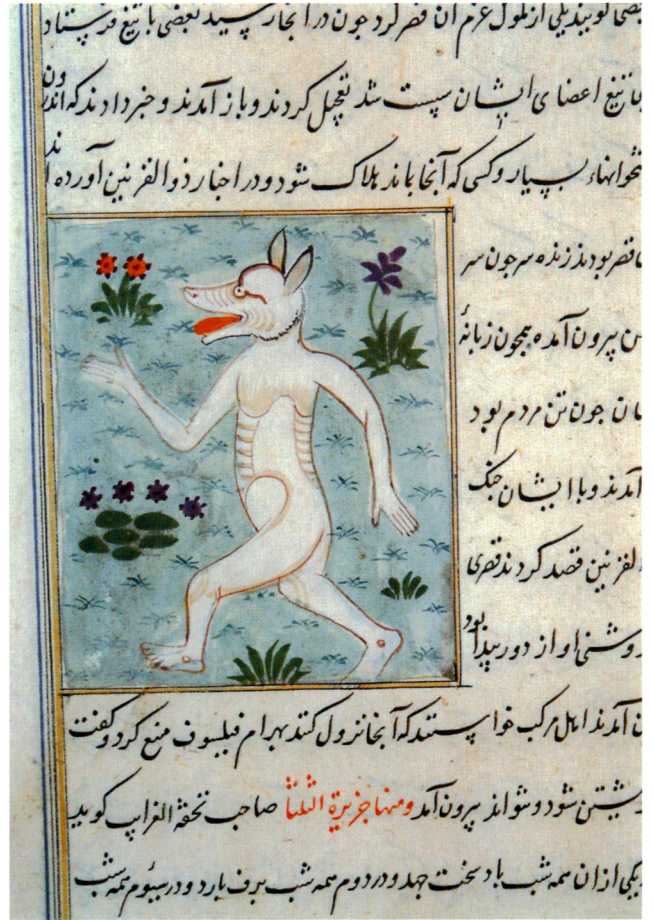 کویند یکی از ملوک عزم ان قصر کرد جون در انجا رسید بعضی با تیغ فرستاد
تیغ اعضای ایشان سست شد تعجیل کردند و باز آمدند و خبر دادند که اندرون
بسیار و کسی که آنجا باند هلاک شود و در اخبار ذوالقرنین آورده اند
قصر بودند زنده سر جون سر
پیرون آمده همجون زبانهٔ
جون تن مردم بود
آمدند و با ایشان جنک
القرنین قصد کردند قصری
روشنی او از دور پیدا بود
آمدند اهل مرکب خواستند که آنجا نزول کنند بهرام فیلسوف منع کرد و کفت
شود و نتواند پیرون آمد ومنها جزیرة الثلثا صاحب تحفة الغرایب کوید
یکی از ان همه شب باد سخت جهد و در دوم همه شب برف بارد و در سیوم همه شب